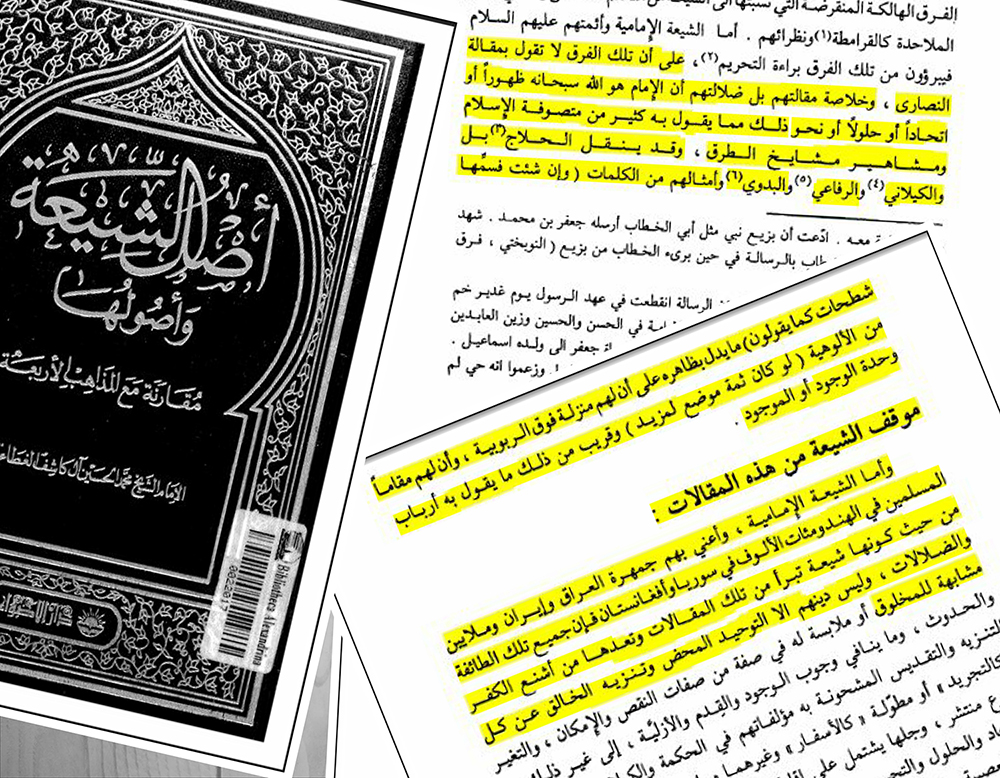 أصل الشيعة
وأصولها
مقارنة مع المذاهب الأربعة
الإمام الشيخ محمد الحسين آل كاشف الغطاء
Bibliotheca Alexandrina
الفرق الهالكة المنقرضة التي نسبتها الى الشيعة من
الملاحدة كالقرامطة(١) ونظرائهم . أما الشيعة الإمامية وأئمتهم عليهم السلام
فيبرؤون من تلك الفرق براءة التحريم(٢)، على أن تلك الفرق لا تقول بمقالة
النصارى ، وخلاصة مقالتهم بل ضلالتهم أن الإمام هو الله سبحانه ظهوراً أو
اتحاداً أو حلولاً أو نحو ذلك مما يقول به كثير من متصوفة الإسلام
ومشاهير مشايخ الطرق ، وقد ينقل الحلاج(٣) بل
والكيلاني(٤) والرفاعي(٥) والبدوي(٦) وأمثالهم من الكلمات ( وإن شئت فسمّها
معه . ادّعت أن بزيع نبي مثل أبي الخطاب أرسله جعفر بن محمد . شهد
بالرسالة في حين برىء الخطاب من بزيع ( النوبختي ، فرق
الرسالة انقطعت في عهد الرسول يوم غدير خم
في الحسن والحسين وزين العابدين
جعفر الى ولده اسماعيل .
وزعموا انه حي لم
شطحات كما يقولون) ما يدل بظاهره على أن لهم منزلة فوق الربوبية ، وأن لهم مقاماً
من الألوهية ( لو كان ثمة موضع لمزيد ) وقريب من ذلك ما يقول به أرباب
وحدة الوجود أو الموجود .
موقف الشيعة من هذه المقالات :
وأما الشيعة الإمامية ، وأعني بهم جمهرة العراق وإيران وملايين
المسلمين في الهند ومئات الألوف في سوريا وأفغانستان فإن جميع تلك الطائفة
من حيث كونها شيعة تبرأ من تلك المقالات وتعدها من أشنع الكفر
والضلالات ، وليس دينهم الا التوحيد المحض وتنزيه الخالق عن كل
مشابهة للمخلوق أو ملابسة له في صفة من صفات النقص والإمكان ، والتغير
والحدوث ، وما ينافي وجوب الوجود والقدم والأزلية ، إلى غير ذلك
التنزيه والتقديس المشحونة به مؤلفاتهم في الحكمة
كالتجريد » أو مطوّلة « كالأسفار » وغيرهما
منتشر ، وجلها يشتمل على
والحلول